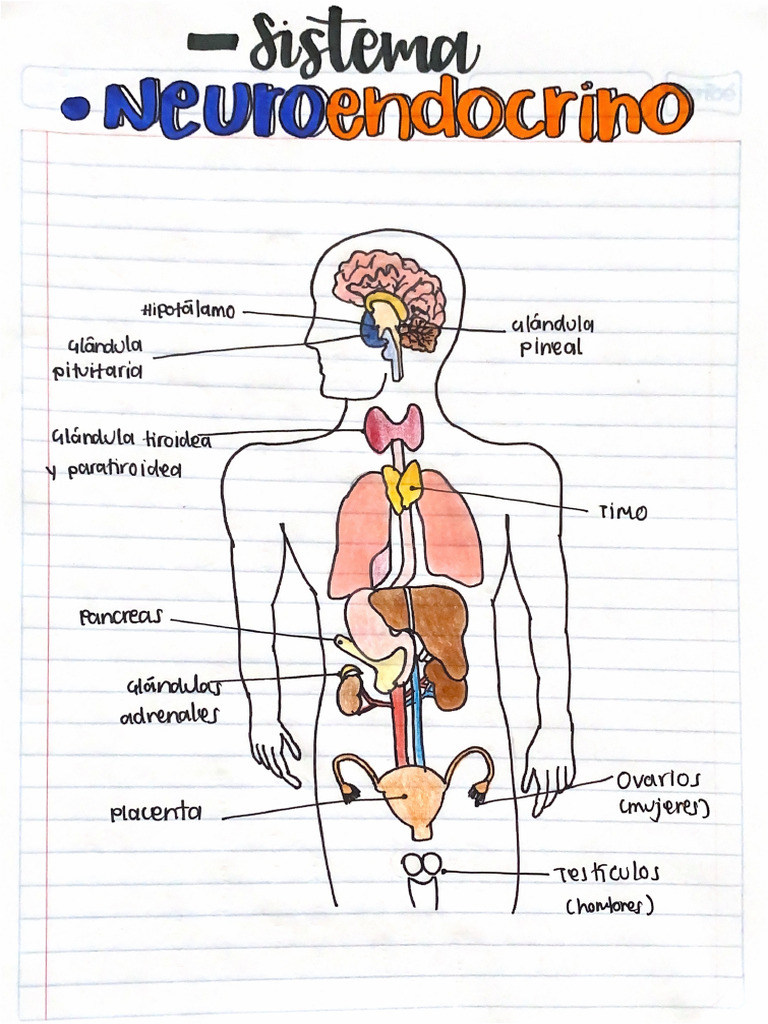 - Sistema
• Neuroendocrino
Hipotálamo
Glándula
pituitaria
Glándula
pineal
Glándula tiroidea
y paratiroidea
Timo
Pancreas
Glándulas
adrenales
Placenta
Ovarios
(mujeres)
Testículos
(hombres)